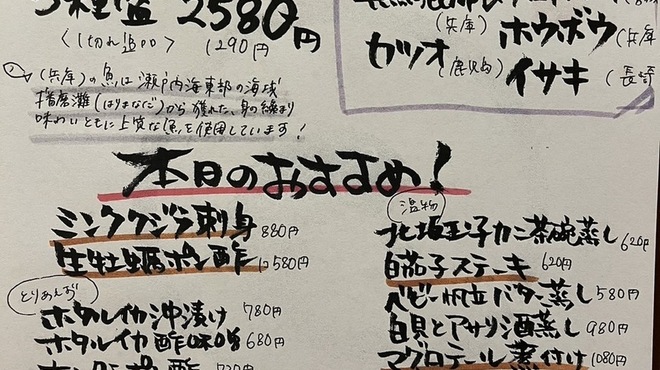 2580円
〈1切れ追加〉 290円
(兵庫)の魚は瀬戸内海東部の海域
播磨灘(はりまなだ)から獲れた、身の締まり
味わいともに上質な魚を使用しています!
(兵庫) ホウボウ (兵庫
カツオ (鹿児島) イサキ (長崎
本日のおすすめ!
ミンククジラ刺身 880円
生牡蠣ポン酢 580円
とりあえず
ホタルイカ沖漬け 780円
ホタルイカ酢味噌 680円
温物
北坂玉子カニ茶碗蒸し 620円
白茄子ステーキ 620円
ベビー帆立バター蒸し 580円
白貝とアサリ酒蒸し 980円
マグロテール煮付け 1080円